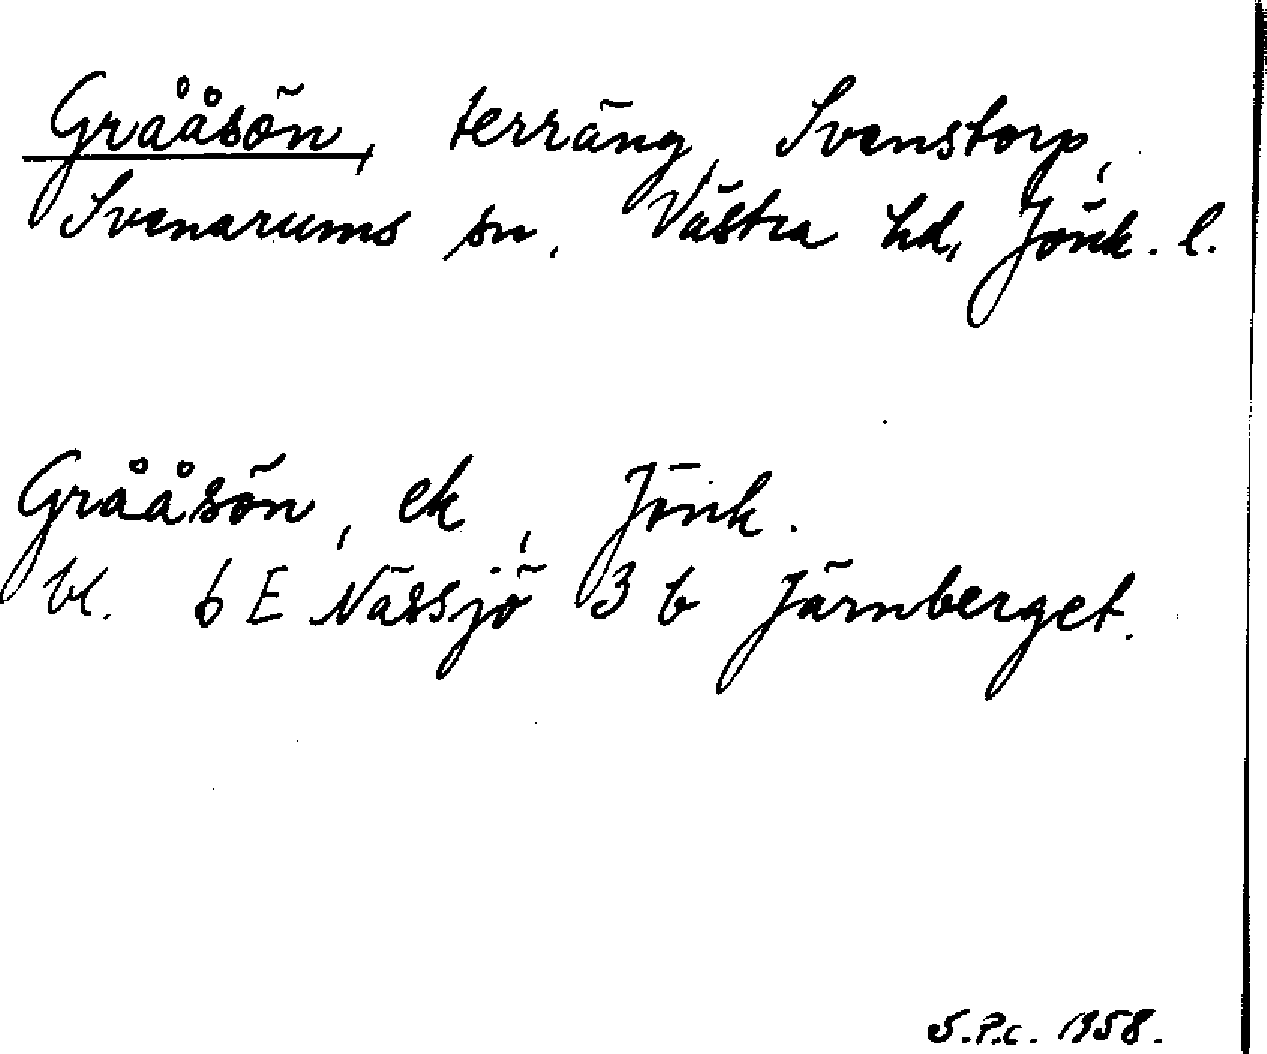 Grååsön, terräng, Svenstorp,
Svenarums sn, Västra hd, Jönk. l.
Grååsön, ek, Jönk.
bl. 6 E Nässjö 3 b Järnberget.
S.P.c. 1958.